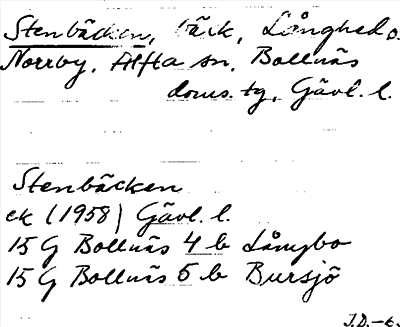 Stenbäcken, bäck, Långhed o.
Norrby, Alfta sn, Bollnäs
doms. tg, Gävl. l.
Stenbäcken
ek (1958) Gävl. l.
15 G Bollnäs 4 b Långbo
15 G Bollnäs 5 b Bursjö
J.D.-6.